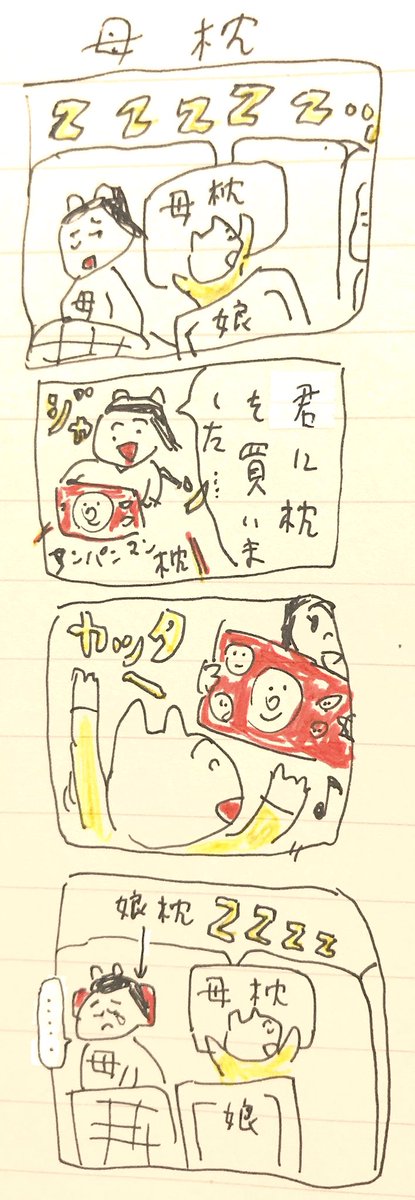 母 枕
ZZZZZ...
母枕
母
娘
君に枕
を買いま
した…
ジャーン
アンパンマン枕
ヤッター
娘枕
ZZZZ
母枕
……
母
娘